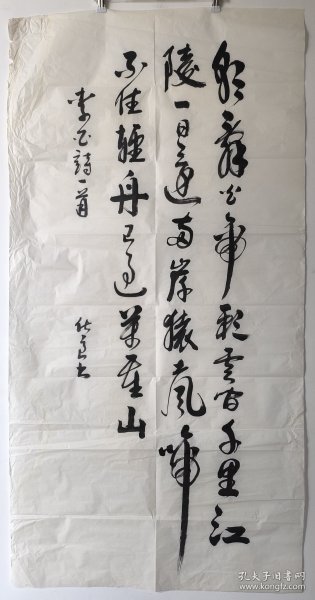 朝辞白帝彩云间千里江
陵一日还两岸猿声啼
不住轻舟已过万重山
李白詩一首
书
孔夫子旧书网
www.kongfz.com